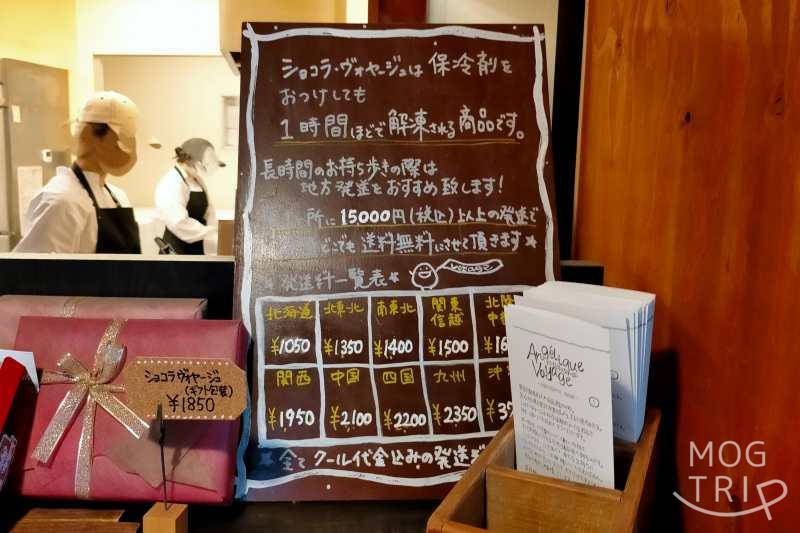 ショコラ・ヴォヤージュは 保冷剤を
おつけしても
1時間ほどで解凍される商品です。
長時間のお持ち歩きの際は
地方発送をおすすめ致します!
所に15000円(税込)以上の発送で
どこでも送料無料にさせて頂きます★
★発送料一覧表★
voyage
北海道 北東北 南東北 関東信越 北陸
¥1050 ¥1350 ¥1400 ¥1500
関西 中国 四国 九州
¥1950 ¥2,100 ¥2200 ¥2350
★全てクール代金込みの発送
ショコラヴォヤージュ
(ギフト包装)
¥1850
Angelique
Voyage
MOG
TRIP